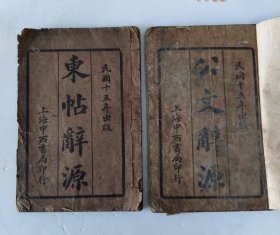 民國十五年出版
東帖辭源
上海中西書局印行
民國十五年出版
公文辭源
上海中西書局印行